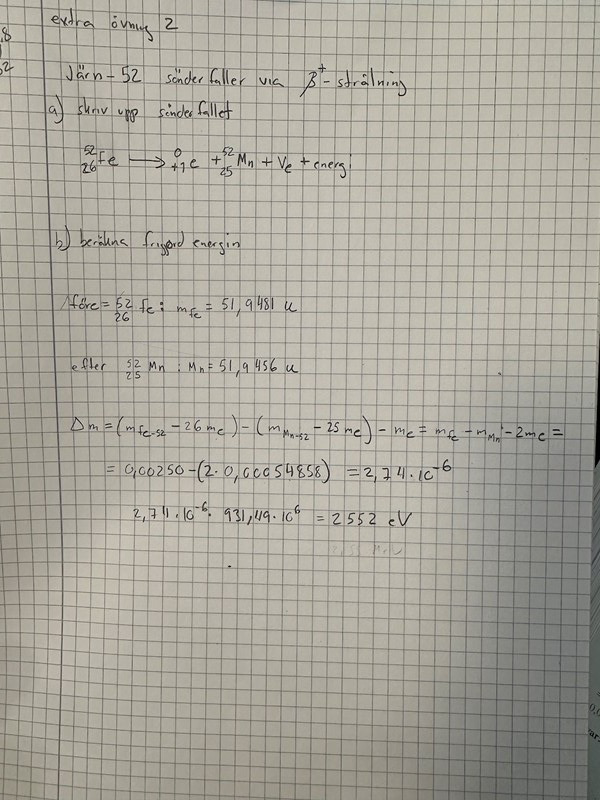 extra övning 2
,8
52
Järn-52 sönderfaller via β⁺-strålning
a) skriv upp sönderfallet
⁵²₂₆Fe ⟶ ⁰₊₁e + ⁵²₂₅Mn + Vₑ + energi
b) beräkna frigjord energin
före = ⁵²₂₆Fe : m_Fe = 51,9481 u
efter ⁵²₂₅Mn : Mn = 51,9456 u
Δm = (m_Fe-52 - 26mₑ) - (m_Mn-52 - 25mₑ) - mₑ = m_Fe - m_Mn - 2mₑ =
= 0,00250 - (2·0,00054858) = 2,74·10⁻⁶
2,74·10⁻⁶ · 931,49·10⁶ = 2552 eV